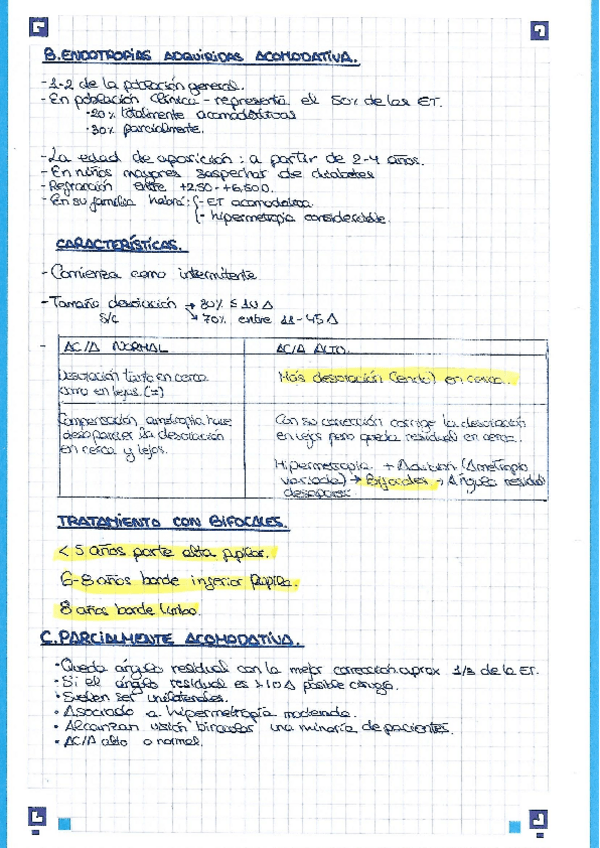 B. ENDOTROPIAS ADQUIRIDAS ACOMODATIVA.
- 1-2 de la población general.
- En población clínica - representa el 50% de las ET.
· 20% totalmente acomodativas
· 30% parcialmente.
- La edad de aparición: a partir de 2-4 años.
- En niños mayores sospechar de diabetes
- Refracción entre +2,50 - +6,50 D.
- En su familia habrá: - ET acomodativa.
- hipermetropía considerable.
CARACTERÍSTICAS.
- Comienza como intermitente
- Tamaño desviación → 30% ≤ 10 Δ
S/C ↘ 70% entre 11-45 Δ
AC/A NORMAL
Desviación tanto en cerca
como en lejos. (=)
Compensación ametropía hace
desaparecer la desviación
en cerca y lejos.
AC/A ALTO.
Más desviación (endo) en cerca.
Con su corrección corrige la desviación
en lejos pero queda residual en cerca.
Hipermetropía + Adición (Ametropía
variada) → Bifocales → Ángulo residual
desaparece.
TRATAMIENTO CON BIFOCALES.
< 5 años parte alta pupilar.
6-8 años borde inferior pupila.
8 años borde limbo.
C. PARCIALMENTE ACOMODATIVA.
· Queda ángulo residual con la mejor corrección. aprox 1/3 de la ET.
· Si el ángulo residual es >10 Δ posible cirugía.
· Suelen ser unilaterales.
· Asociado a hipermetropía moderada.
· Alcanzan visión binocular una minoría de pacientes.
· AC/A alto o normal.